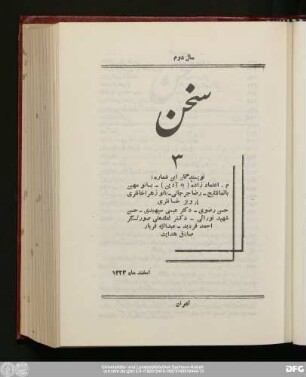 سال دوم
سخن
۳
نویسندگان این شماره:
م . اعتمادزاده ( به آذین ) - بانو مهین
رضا جرجانی - بانو زهرا خانلری
پرویز خانلری
حسن رضوی - دکتر عیسی سپهبدی - حسن
شهید نورائی - دکتر لطفعلی صورتگر
احمد فردید - عبدالله فریار
صادق هدایت
اسفند ماه ۱۳۲۳
تهران
Universitäts- und Landesbibliothek Sachsen-Anhalt
DFG